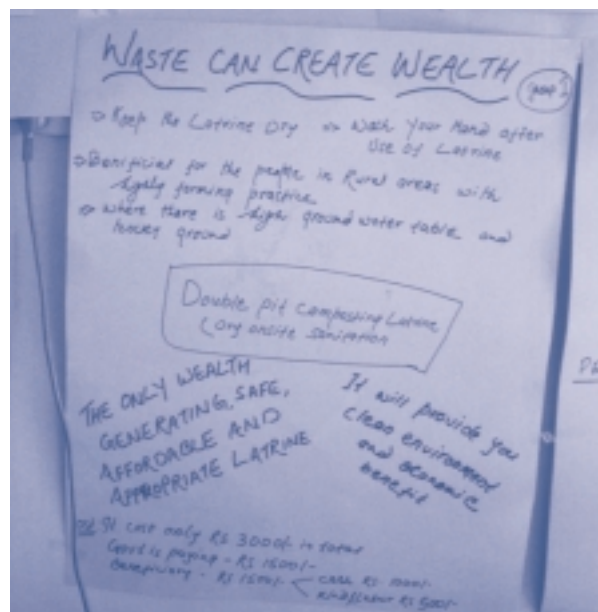 WASTE CAN CREATE WEALTH
group 1
⇒ Keep the Latrine Dry ⇒ Wash Your Hand after
Use of Latrine
⇒ Beneficial for the people in Rural areas with
highly farming practice
⇒ where there is high ground water table and
rocky ground
Double pit composting Latrine
(Dry onsite sanitation
THE ONLY WEALTH
GENERATING, SAFE,
AFFORDABLE AND
APPROPRIATE LATRINE
It will provide you
clean environment
and economic
benefit
It cost only RS 3000/- in total
Govt is paying - RS 1500/-
Beneficiary - RS 1500/- cash RS 1000/-
kind/labour RS 500/-